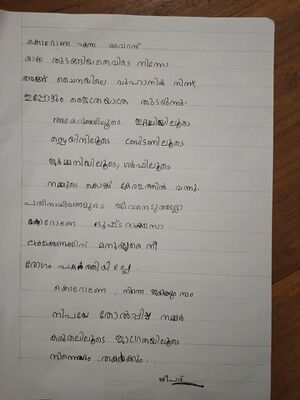 കൊറോണ എന്ന വൈറസ്
യാത്ര തുടങ്ങിയതെവിടെ നിന്നോ
അങ്ങ് ചൈനയിലെ വുഹാനിൽ നിന്ന്
ഇപ്പോഴും ജൈത്രയാത്ര തുടരുന്നു.
അമേരിക്കയിലൂടെ ഇറ്റലിയിലൂടെ
സ്പെയിനിലൂടെ ബ്രിട്ടണിലൂടെ
ജർമ്മനിയിലൂടെ, ഗൾഫിലൂടെ
നമ്മുടെ കൊച്ചു കേരളത്തിൽ വന്നു.
പതിനായിരങ്ങളുടെ ജീവനെടുത്തല്ലോ
കൊറോണ ദുഷ്ട രാക്ഷസാ...
ലക്ഷക്കണക്കിന് മനുഷ്യരെ നീ
രോഗം പകർത്തിയില്ലേ.
കൊറോണ, നിന്നെ ഞങ്ങളും
നിപയെ തോൽപ്പിച്ച നമ്മൾ
കരുതലിലൂടെ ജാഗ്രതയിലൂടെ
നിന്നെയും തകർക്കും...